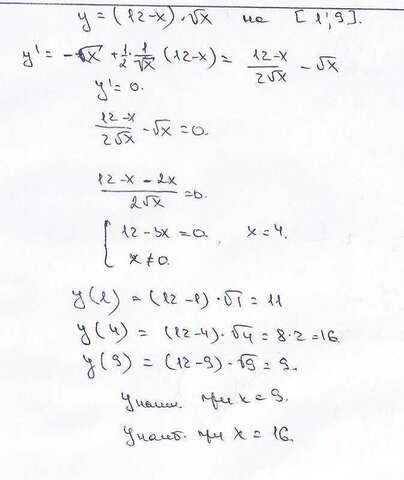 y = (12-x)·√x на [1;9].
y' = -√x + 1/2·1/√x (12-x) = (12-x)/(2√x) - √x
y' = 0.
(12-x)/(2√x) - √x = 0.
(12-x-2x)/(2√x) = 0.
{ 12-3x = 0. x = 4.
x ≠ 0.
y(1) = (12-1)·√1 = 11
y(4) = (12-4)·√4 = 8·2 = 16.
y(9) = (12-9)·√9 = 9.
y наим. при x = 9.
y наиб. при x = 16.